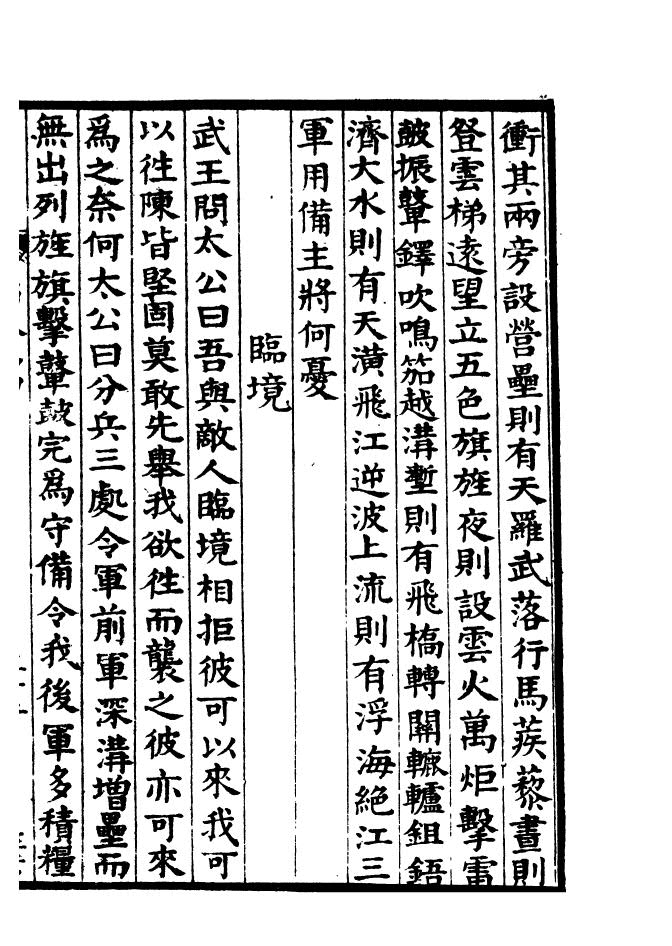 衝其兩旁設營壘則有天羅武落行馬蒺藜晝則
登雲梯遠望立五色旗旌夜則設雲火萬炬擊雷
皷振鼙鐸吹鳴笳越溝塹則有飛橋轉關轆轤鉏鋙
濟大水則有天潢飛江逆波上流則有浮海絶江三
軍用備主將何憂
臨境
武王問太公曰吾與敵人臨境相拒彼可以來我可
以徃陳皆堅固莫敢先舉我欲徃而襲之彼亦可來
爲之奈何太公曰分兵三處令軍前軍深溝增壘而
無出列旌旗擊鼙皷完爲守備令我後軍多積糧